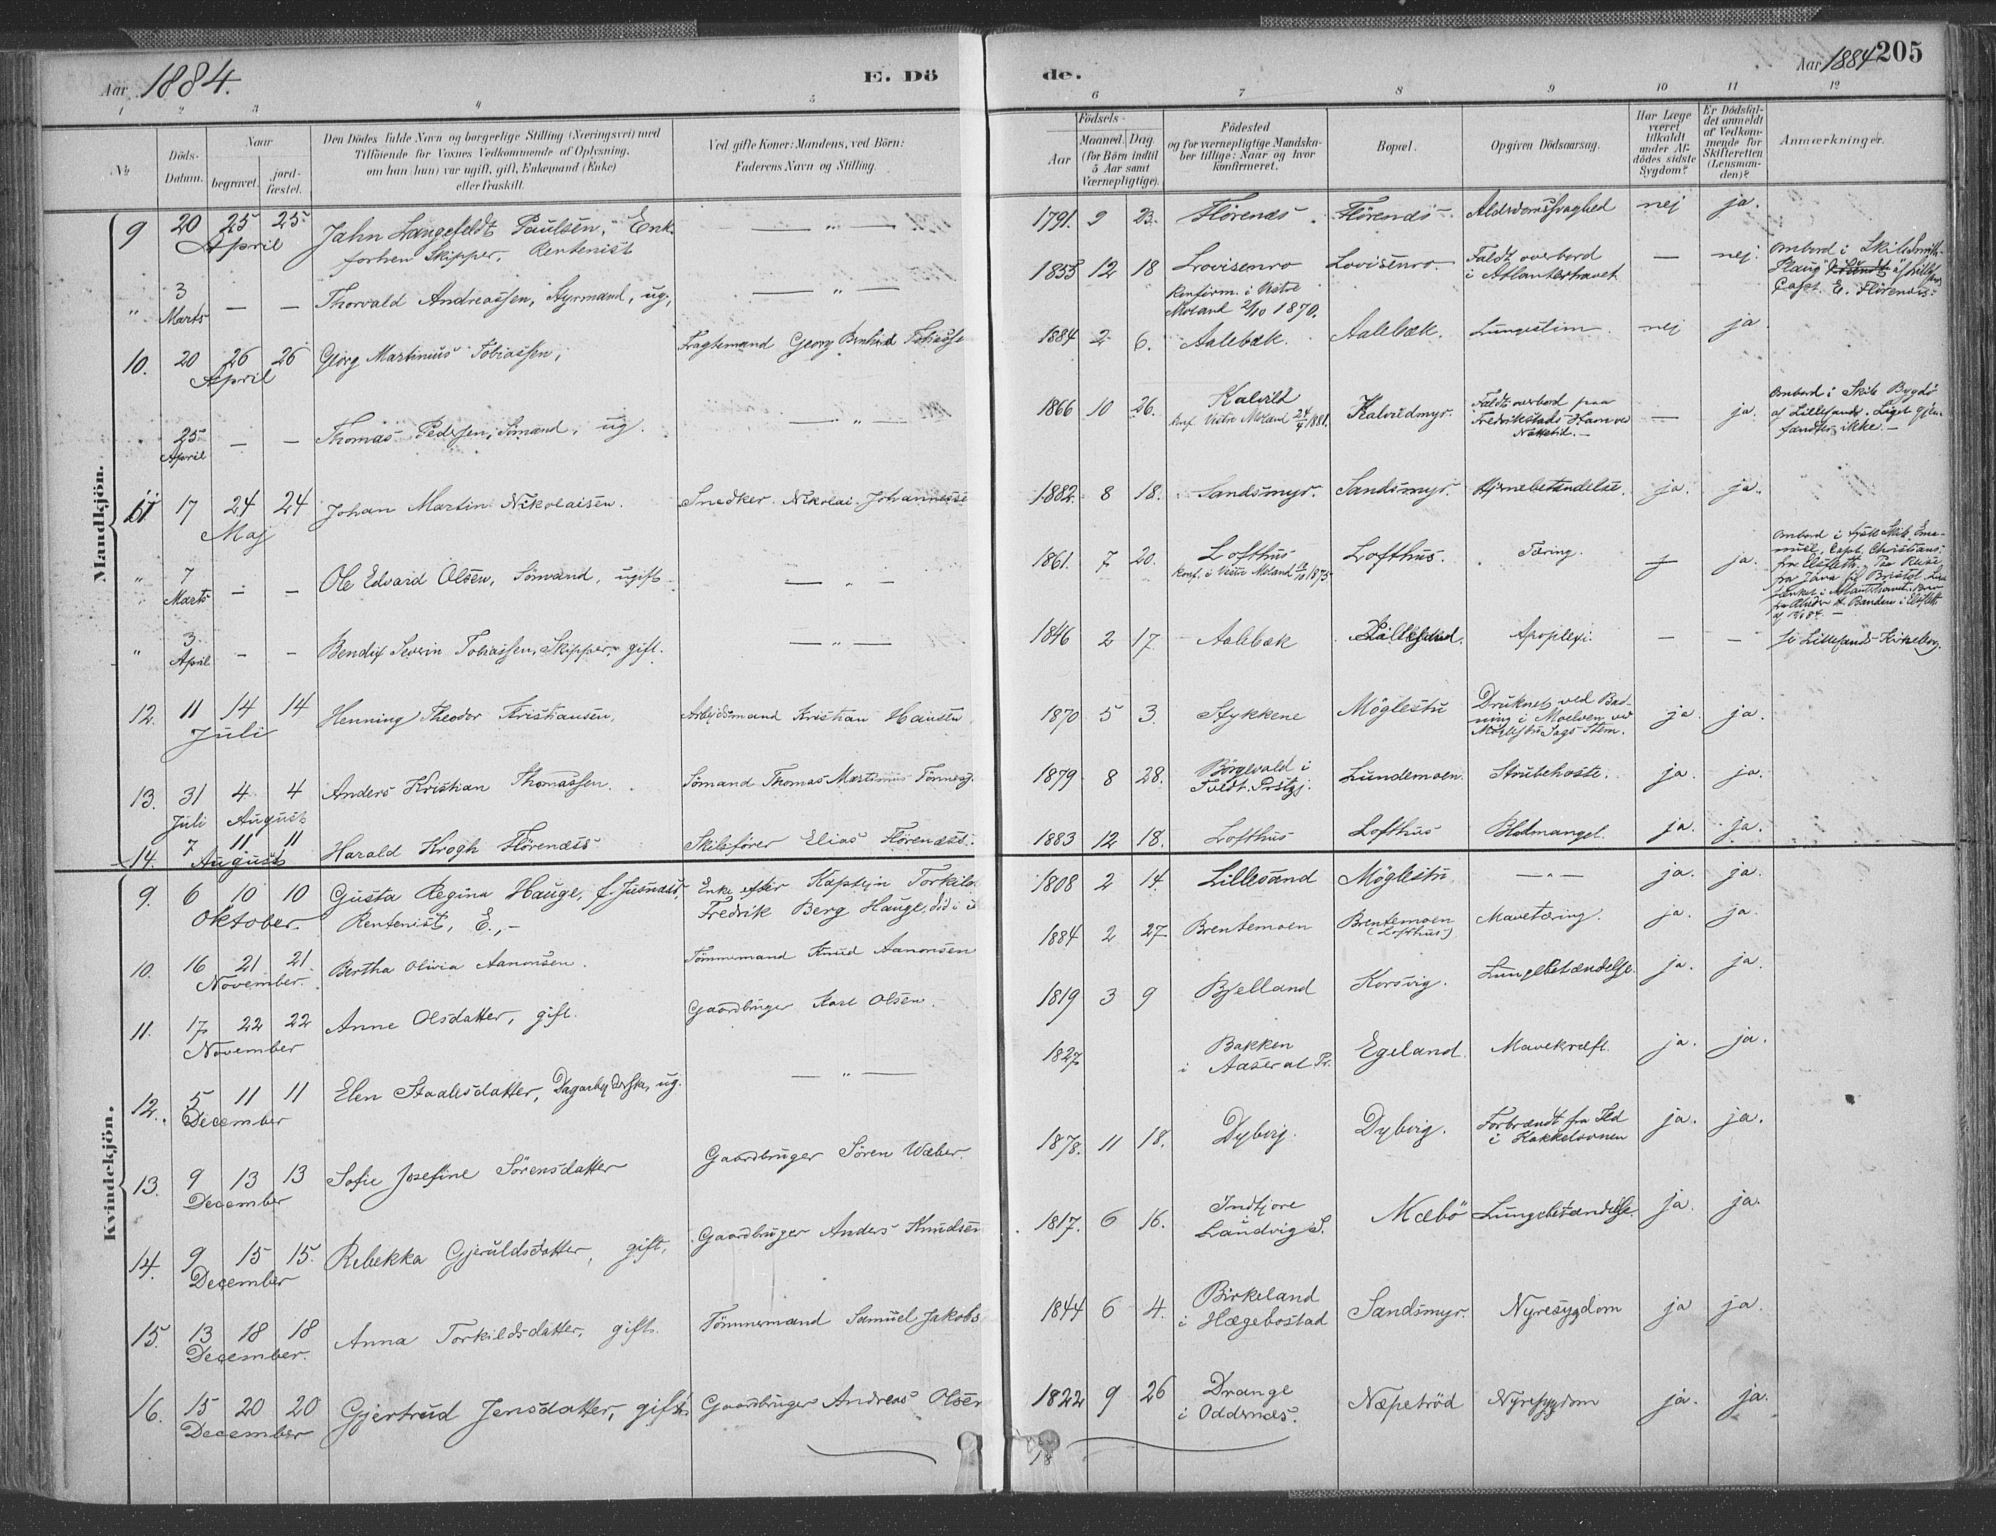 Aar 1884.
E. Dö
de.
Aar 1884 205
1 2 3 4 5 6 7 8 9 10 11 12
№
Döds-Datum.
Naar
begravet.
jord-fæstet.
Den Dödes fulde Navn og borgerlige Stilling (Næringsvei) med
Tilföiende for Voxnes Vedkommende af Oplysning,
om han (hun) var ugift, gift, Enkemand (Enke)
eller fraskilt.
Ved gifte Koner: Mandens, ved Börn:
Faderens Navn og Stilling.
Födsels-
Aar
Maaned. Dag.
(for Börn indtil
5 Aar samt
Værnepligtige).
Födested
og for værnepligtige Mandska-
ber tillige: Naar og hvor
konfirmeret.
Bopæl.
Opgiven Dödsaarsag.
Har Læge
været
tilkaldt
under Af-
dödes sidste
Sygdom?
Er Dödsfal-
det anmeldt
af Vedkom-
mende for
Skifteretten
(Lensman-
den)?
Anmærkninger.
Mandkjön.
9 20 25 25 April Jahn Langefeldt Paulsen, Enk.
forhen Skipper, Rentenist
— " — 1791. 9 23. Flörenæs. Flörenæs. Alderdomssvaghed nej ja.
" 3 Marts — — Thorvald Andreassen, Styrmand, ug.,
— " — 1855 12 18 Lovisenro
Konfirm. i Vestre
Moland 2/10 1870.
Lovisenro. Faldt overbord
i Atlanterhavet — nej. Ombord i Skib
Capt. E. Flörenæs.
10. 20 26 26 April Georg Martinius Tobiassen,
Fragtemand Georg Tobiasse
1884 2 6. Aalebæk. Aalebæk. nej ja
25 April — — Thomas Pedersen, Sömand, ug.
— " — 1866 10 26. Kalvild
Konf. Vestre Moland 24/4 1881.
Kalvildmyr. Faldt overbord paa
Fredrikstads Havn ved
Nattetid. — — ja. Ombord i Skib Bygdö
af Lillesand. Liget gjen-
fandtes ikke. —
11 17 24 24 Maj Johan Martin Nikolaisen.
Snedker Nikolai Johannesse
1882. 8 18. Sandsmyr. Sandsmyr. Hjernebetændelse. ja. ja.
" 7 Marts — — Ole Edvard Olsen, Sömand, ugift
— " — 1861. 7 20. Lofthus
Konf. i Vestre Moland 1875
Lofthus. Tæring. ja. Ombord i tysk Skib
Capt. Christians
fra Elsfleth. Paa Reise
fra Java til Bristol.
" 3 April — — Bendix Severin Tobiassen, Skipper, gift.
— " — 1846 2 17. Aalebæk Lillesand. Apoplexi. — — i Lillesands Kirkebog.
12. 11 14 14 Juli Henning Theodor Kristiansen,
Arbejdsmand Kristian Hansen
1870 5 3. Stykkene Möglestu Druknet ved Bad-
ning i Moelven ved
Möglestu Sags Stem. ja. ja.
13. 31 Juli 4 4 August Anders Kristian Thomassen.
Sömand Thomas Martinius Tönnes
1879 8 28. Börgevold i
Tvedt. Prstgj. Lundemoen. Strubehoste. ja. ja.
14. 7 11 11 August Harald Krogh Flörenæss
Skibsförer Elias Flörenæss.
1883 12 18. Lofthus Lofthus Blodmangel. ja. ja.
Kvindekjön.
9. 6 10 10 Oktober. Gusta Regina Hauge, f. Jusnæss,
Rentenist, E., —
Enke efter Kaptejn Torkild
Fredrik Berg Hauge
1808 2 14. Lillesand Möglestu — " — ja. ja.
10. 16 21 21. November. Bertha Olivia Aanonsen.
Tömmermand Knud Aanonsen
1884 2 27. Brentemoen Brentemoen
(Lofthus) Mavetæring. ja. ja.
11. 17 22 22 November Anne Olsdatter, gift.
Gaardbruger Karl Olsen.
1819 3 9 Bjelland Korsvig. Lungebetændelse. ja. ja.
12. 5 11 11 December Elen Staalesdatter, Dagarbejderske, ug.
— " — 1827. Bakken
i Aaseral Pr. Egeland. Mavekræft. ja. ja.
13. 9 13 13 December Sofie Josefine Sörensdatter
Gaardbruger Sören Wæber.
1878. 11 18. Dybvig. Dybvig. Forbrændt fra Ild
i Kakkelovnen ja. ja.
14. 9 15 15. December Rebekka Gjeruldsdatter, gift,
Gaardbruger Anders Knudsen
1817. 6 16. Indtjore
Landvig S. Mæbö Lungebetændelse. ja. ja.
15. 13 18 18 December. Anna Torkildsdatter, gift.
Tömmermand Samuel Jakobs
1844 6 4. Birkeland
i Hægebostad Sandsmyr. Nyresygdom ja ja.
16. 15 20 20 December Gjertrud Jensdatter, gift.
Gaardbruger Andreas Olsen
1822 9 26 Drange
i Oddernæs. Næpetröd Nyresygdom ja. ja.
18